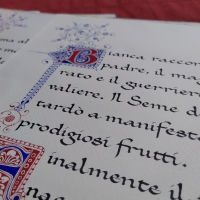 Bianca raccon
padre, il ma
rato e il guerrien
valiere. Il Seme d
tardò a manifesta
prodigiosi frutti.
inalmente il